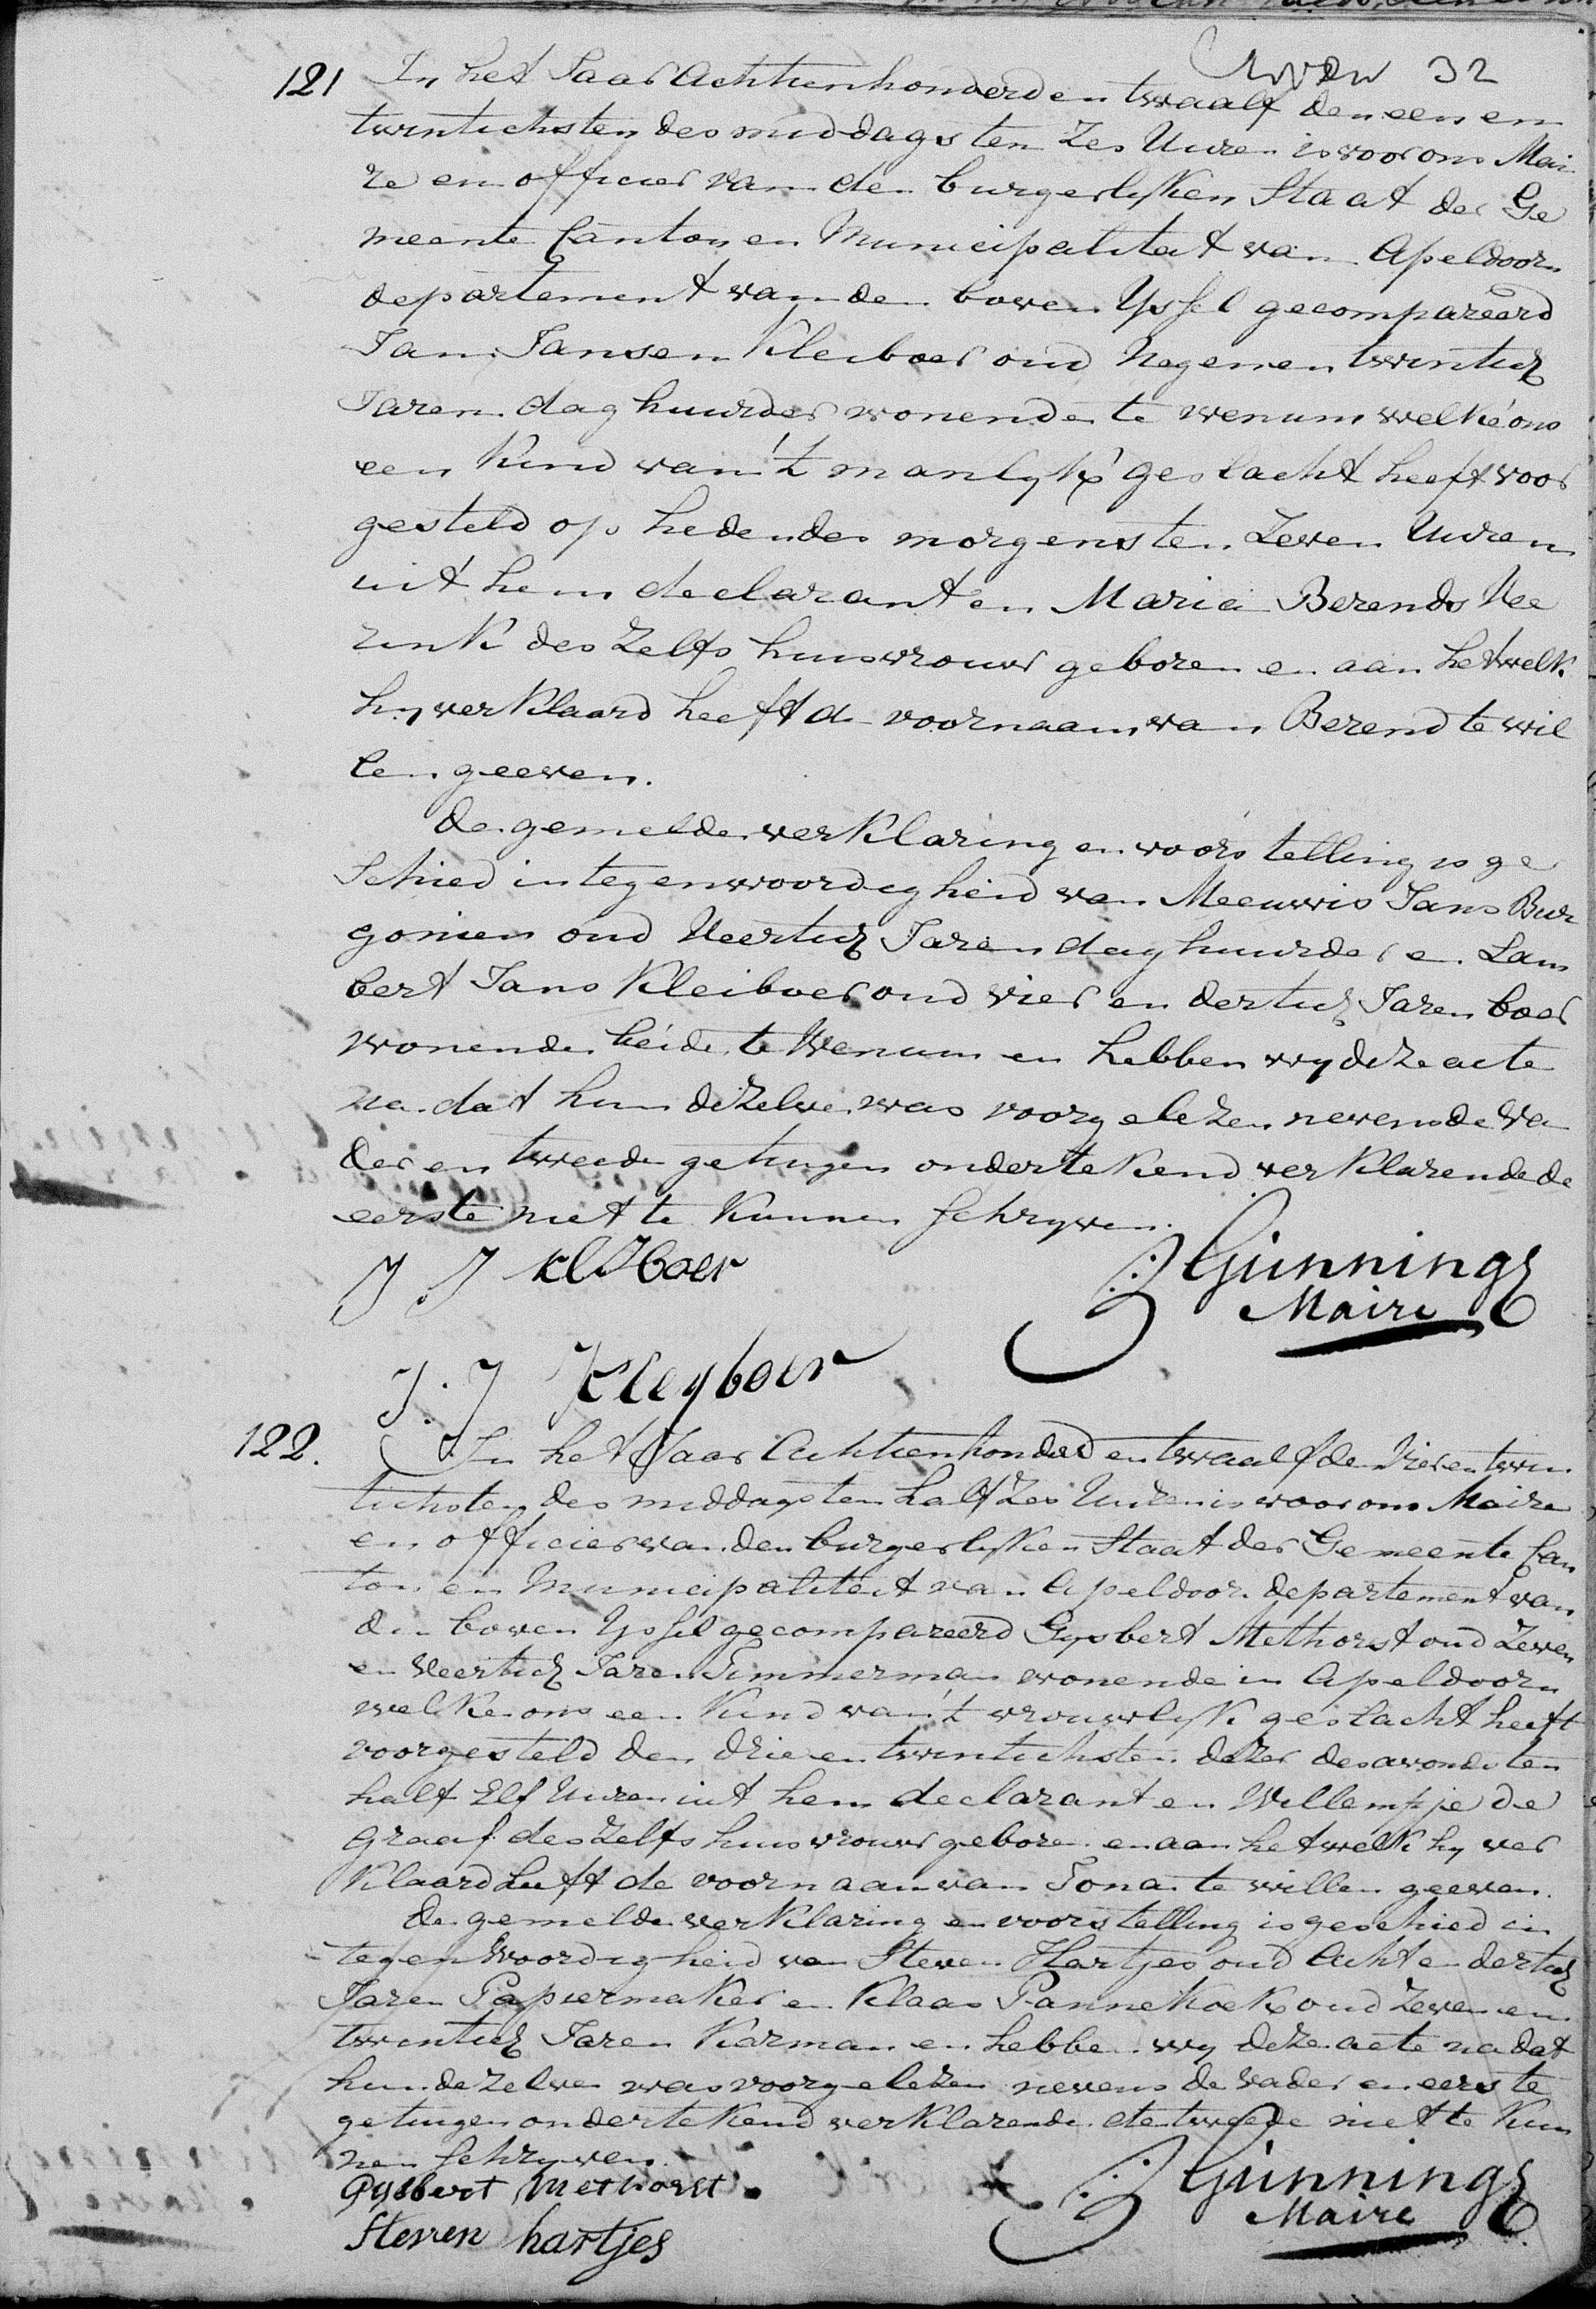 32
121 In het Jaar Achttienhonderd en twaalf den een en
twintichsten des middags ten Zes Uuren is voor ons Mai
re en officier van den burgerlyken Staat der Ge
meente Canton en Municipaliteit van Apeldoorn
departement van den boven Yssel gecompareerd
Jan Jansen Kleiboer oud Negen en twintich
Jaren daghuurder wonende te wenum welke ons
een Kind van 't manlyk geslacht heeft voor
gesteld op heden des morgens ten Zeven Uuren
uit hem declarant en Maria Berends Vee
rink des Zelfs huisvrouw geboren en aan het welk
hy verklaard heeft de voornaam van Berend te wil
len geeven.
de gemelde verklaring en voorstelling is ge
schied in tegenwoordigheid van Meeuwis Jans Bur
gonien oud Veertich Jaren daghuurder en Lam
bert Jans Kleiboer oud vier en dertich Jaren boer
wonende beide te Wenum en hebben wy deze acte
na dat hun dezelve was voorgelezen nevens de va
der en tweede getuigen ondertekend verklarende de
eerste niet te kunnen schryven.
J J Kl boer
Gunning
Maire
J. J Kleyboer
122. In het Jaar Achttienhonderd en twaalf den Vier en twin
tichsten des middags ten half Zes Uuren is voor ons Maire
en officier van den burgerlyken Staat der Gemeente Can
ton en Municipaliteit van Apeldoorn departement van
den boven Yssel gecompareerd Gysbert Methorst oud Zeven
en Veertich Jaren Timmerman wonende in Apeldoorn
welke ons een Kind van 't vrouwlyk geslacht heeft
voorgesteld den drie en twintichsten dezer des avonds ten
half Elf Uuren uit hem declarant en Willempje de
Graaf des Zelfs huisvrouw geboren en aan het welk hy ver
klaard heeft de voornaam van Tona te willen geeven.
de gemelde verklaring en voorstelling is geschied in
tegenwoordigheid van Steven Hartjes oud Acht en dertich
Jaren Papiermaker en Klaas Pannekoek oud Zeven en
twintich Jaren Karman en hebben wy deze acte na dat
hun dezelve was voorgelezen nevens de vader en eerste
getuigen ondertekend verklarende de tweede niet te kun
nen schryven.
Gysbert Methorst
Gunning
Maire
Steven hartjes